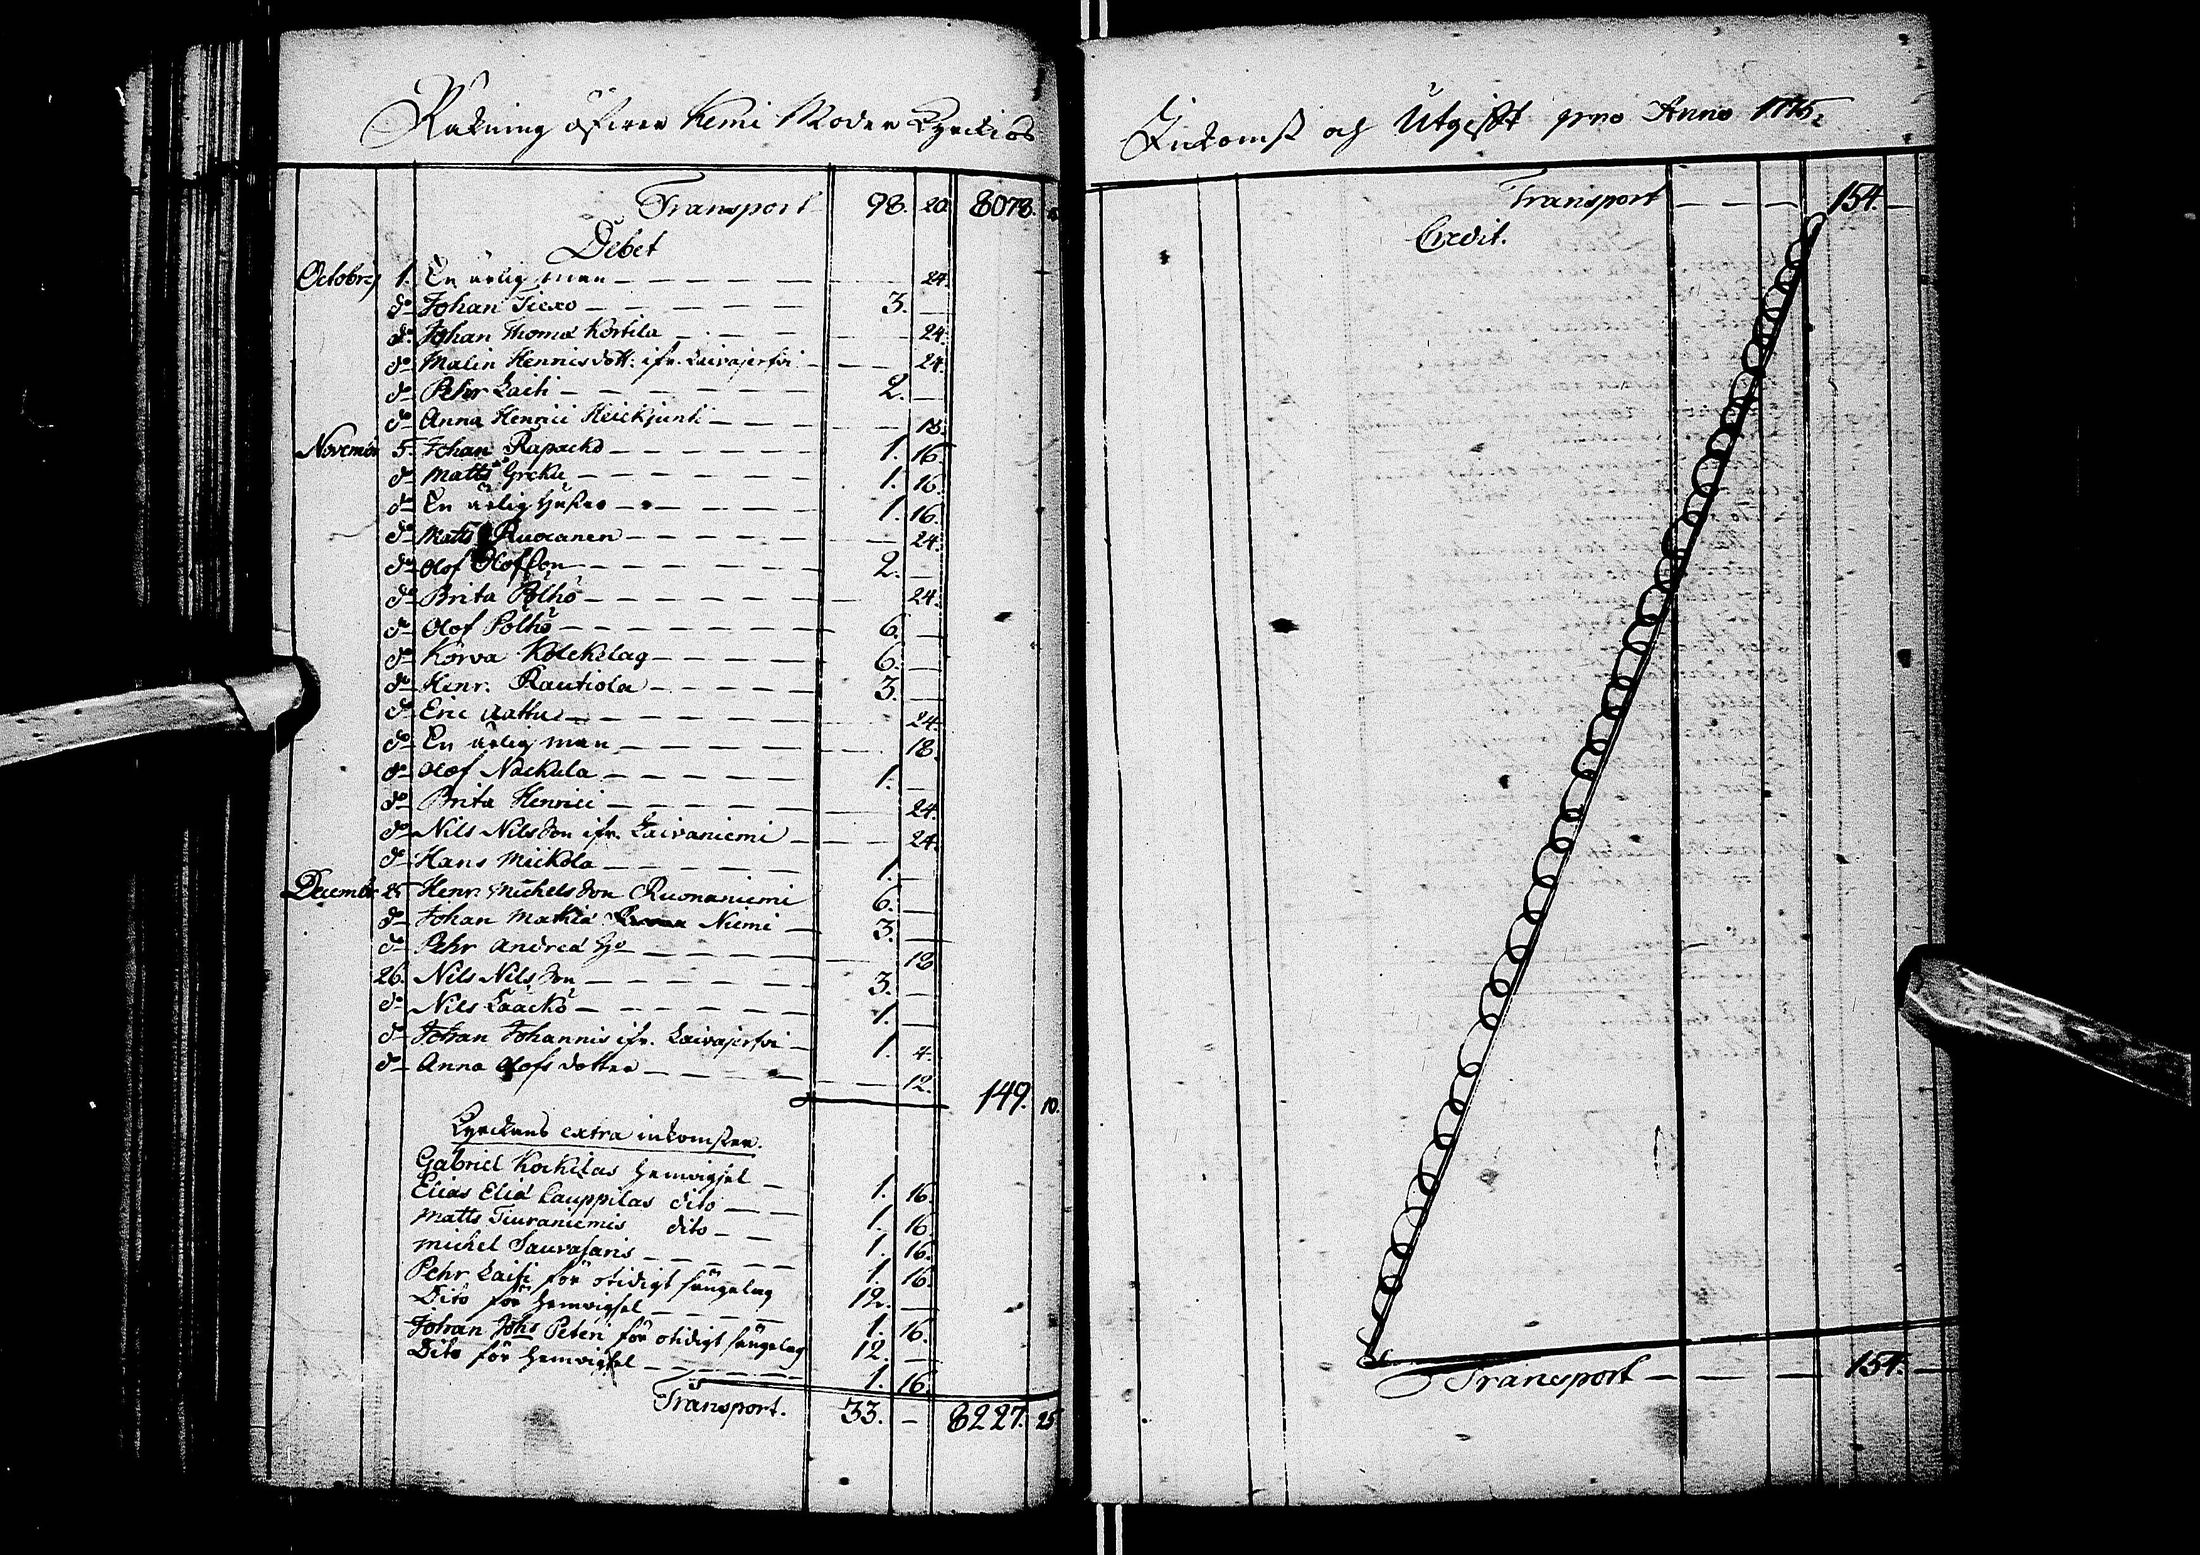 Räkning öfwer Kemi Moder Kyrckios
Transport 98. 20. 8078.
Debet
Octobr 1. En ärlig man — 24.
do Johan Tiexo — 3. —
do Johan Thomæ Körkila — 24.
do Malin Hennics dott: ifr. Laivajerfvi — 24.
do Pehr Laiti — 2. —
do Anna Henrici Heickjunti — 18.
Novembr 5. Johan Rapacko — 1. 16
do Matts Greku — 1. 16.
do En ärlig Hustro — 1. 16.
do Matts Ruoranen — 24.
do Olof Olofson — 2. —
do Brita Pölhö — 24.
do Olof Pölhö — 6. —
do Korva Kolckilag — 6. —
do Henr. Rautiola — 3. —
do Eric Aattu — 24.
do En ärlig man — 18.
do Olof Nackula — 1. —
do Brita Henrici — 24.
do Nils Nilsson ifr. Laivaniemi — 24.
do Hans Mickola — 1. —
Decembr 25 Henr. Michelsson Ruonaniemi 6. —
do Johan Mathiæ Niemi — 3. —
do Pehr Andreæ — 18
26. Nils Nilsson — 3. —
do Nils Laacko — 1. —
do Johan Johannis ifr. Laivajerfvi — 1. 4.
do Anna Olofs dotter — 12.
149. 10.
Kyrckans extra inkomster.
Gabriel Kockilas hemvigsel — 1. 16.
Elias Eliæ Lauppilas dito — 1. 16.
Matts Tiuraniemis dito — 1. 16.
Michel Sauvasaris — 1. 16.
Pehr Laiti för otidigt sängelag 12. —
Dito för hemvigsel — 1. 16.
Johan Johs Peteri för otidigt sängelag 12. —
Dito för hemvigsel — 1. 16.
Transport. 33. — 8227. 25
Inkomst och Utgifft pro Anno 1775.
Transport — 154. —
Credit.
Transport — 154. —